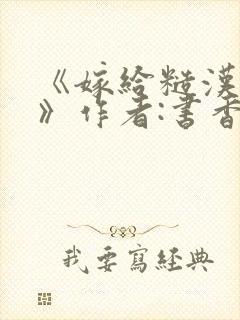 《嫁給糙漢
》作者:書香
我要寫經典